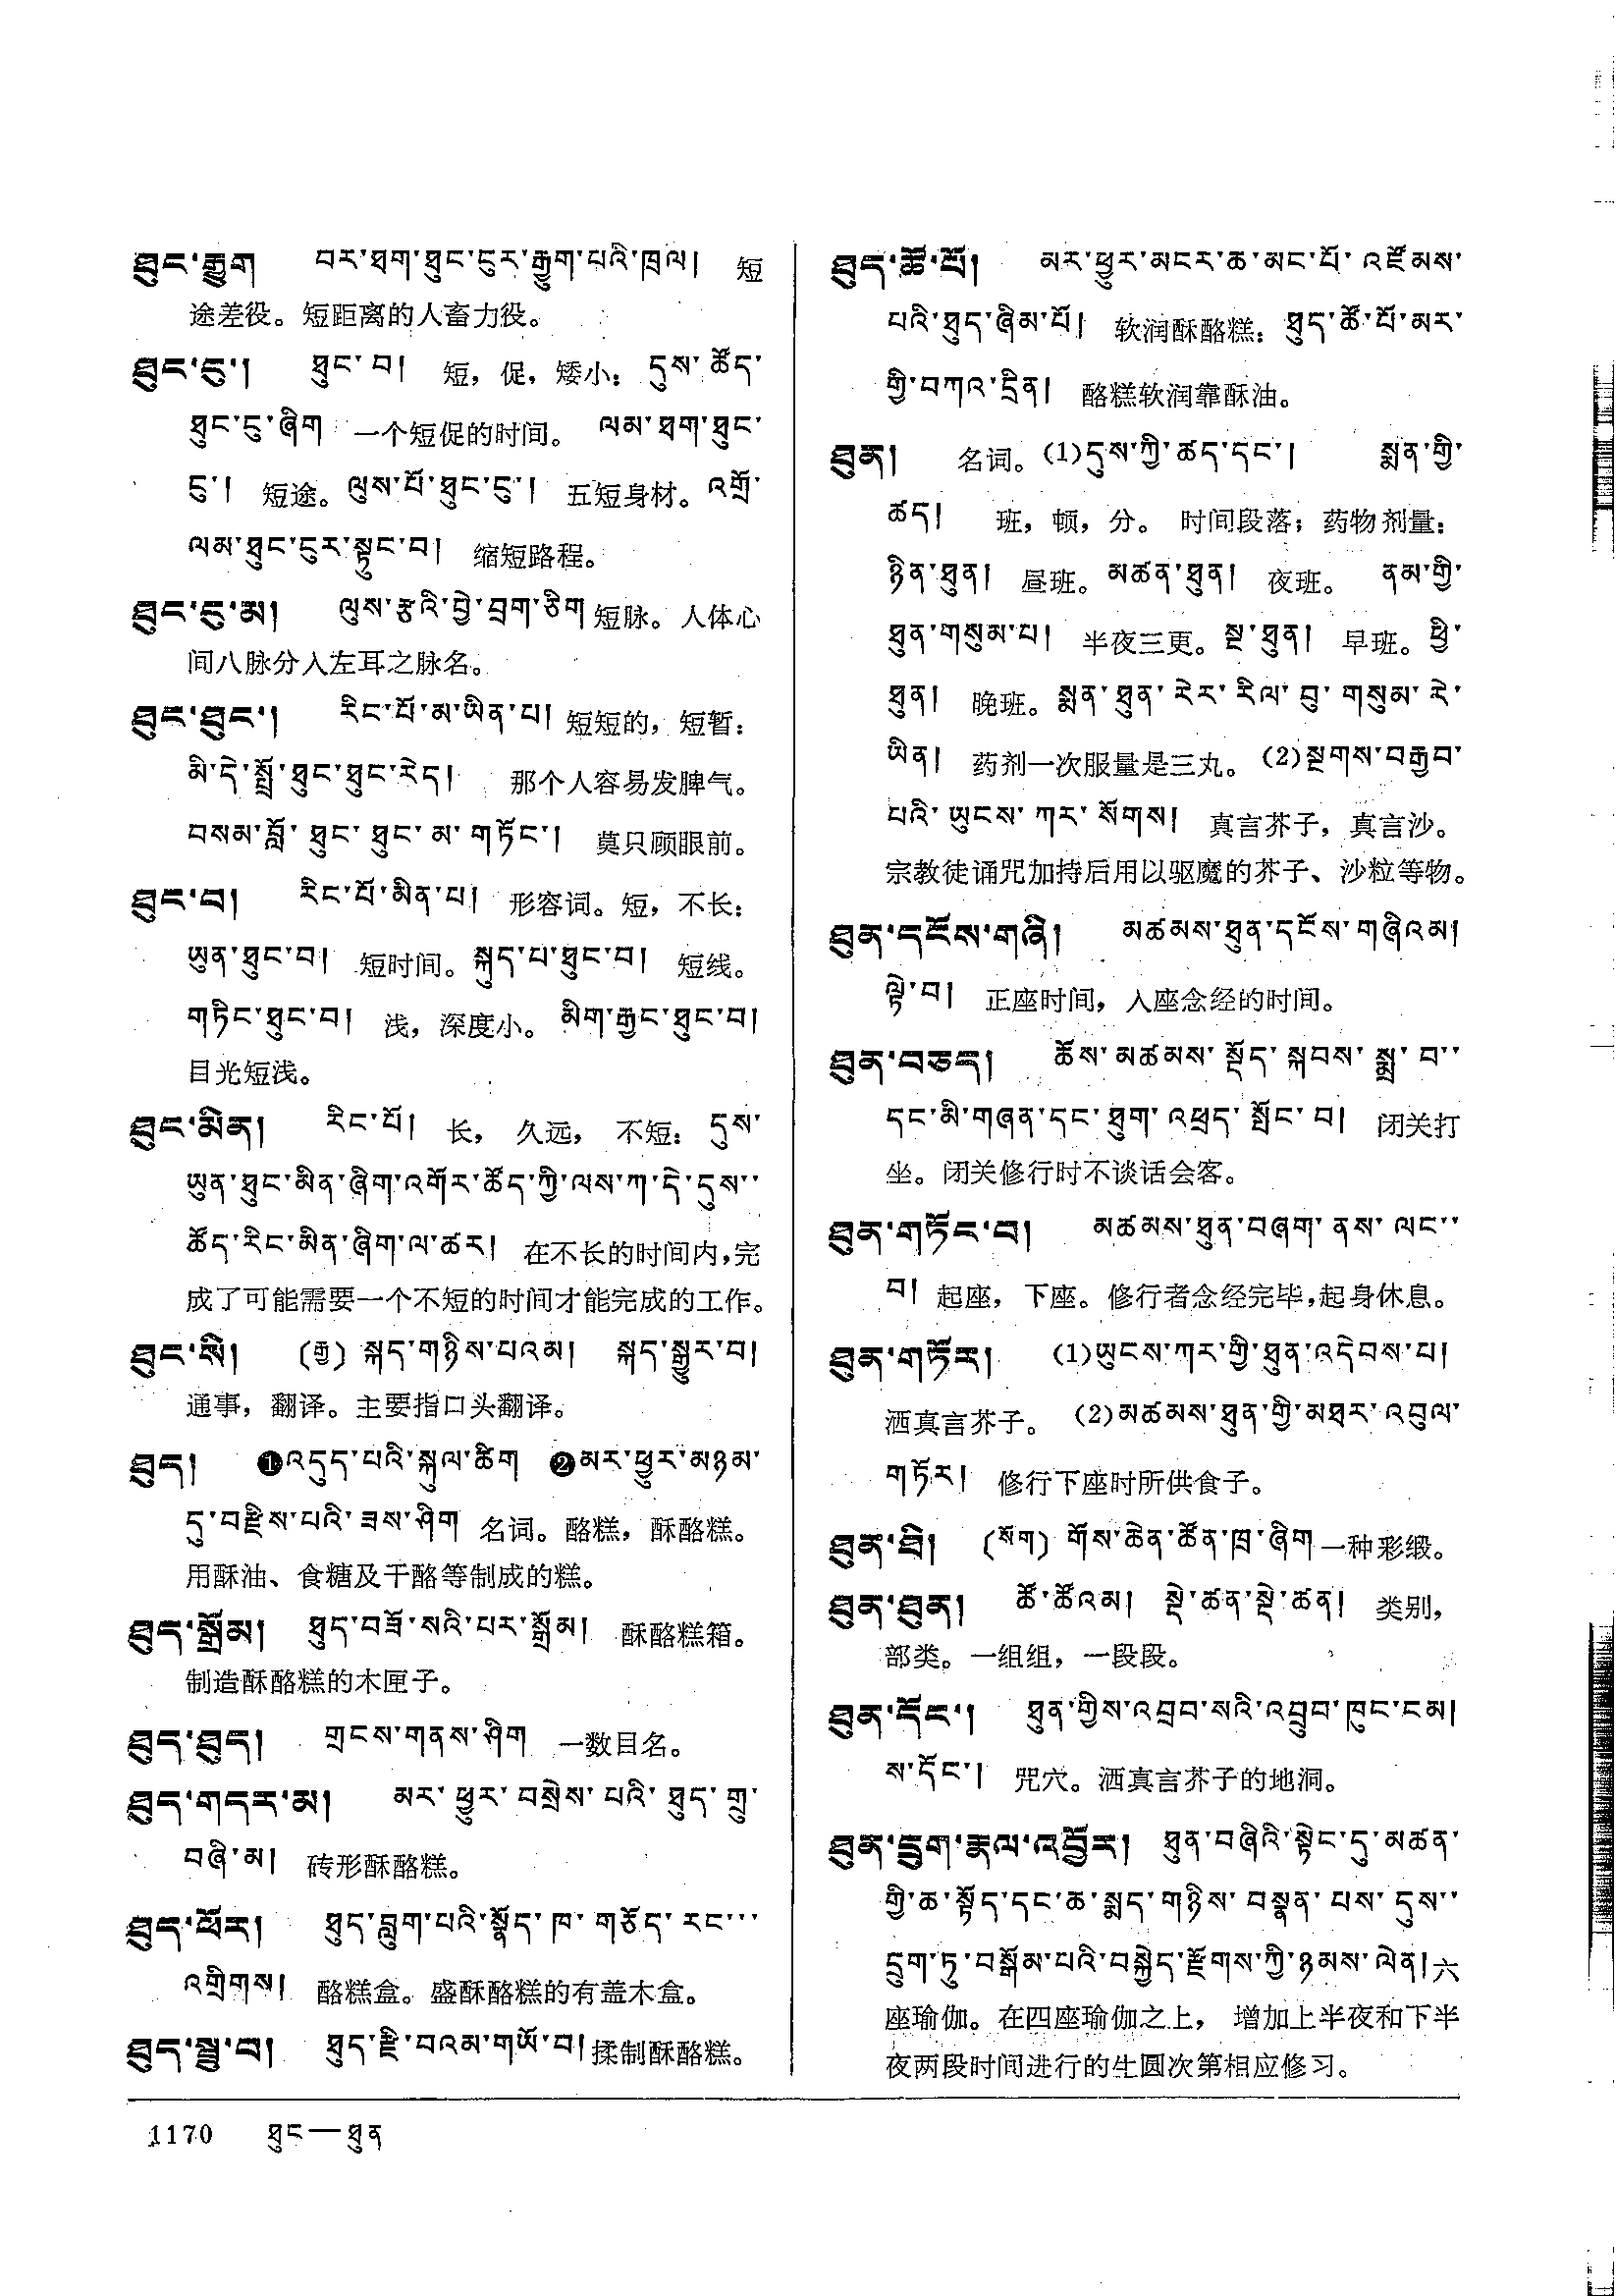 ཐུང་རྒྱུག བར་ཐག་ཐུང་ངུར་རྒྱུག་པའི་ཁྲལ། 短
途差役。短距离的人畜力役。
ཐུང་ངུ་། ཐུང་བ། 短，促，矮小：དུས་ཚོད་
ཐུང་ངུ་ཞིག 一个短促的时间。ལམ་ཐག་ཐུང་
ངུ་། 短途。ལུས་པོ་ཐུང་ངུ་། 五短身材。འགྲོ་
ལམ་ཐུང་ངུར་སྟུང་བ། 缩短路程。
ཐུང་ངུ་མ། ལུས་རྩའི་བྱེ་བྲག་ཅིག 短脉。人体心
间八脉分入左耳之脉名。
ཐུང་ཐུང་། རིང་པོ་མ་ཡིན་པ། 短短的，短暂：
མི་དེ་གློ་ཐུང་ཐུང་རེད། 那个人容易发脾气。
བསམ་བློ་ཐུང་ཐུང་མ་གཏོང་། 莫只顾眼前。
ཐུང་བ། རིང་པོ་མིན་པ། 形容词。短，不长：
ཡུན་ཐུང་བ། 短时间。སྐུད་པ་ཐུང་བ། 短线。
གཏིང་ཐུང་བ། 浅，深度小。མིག་རྒྱང་ཐུང་བ།
目光短浅。
ཐུང་མིན། རིང་པོ། 长，久远，不短：དུས་
ཡུན་ཐུང་མིན་ཞིག་འགོར་ཚོད་ཀྱི་ལས་ཀ་དེ་དུས་་
ཚོད་རིང་མིན་ཞིག་ལ་ཚར། 在不长的时间内，完
成了可能需要一个不短的时间才能完成的工作。
ཐུང་སི། (རྒྱ) སྐད་གཉིས་པའམ། སྐད་སྒྱུར་བ།
通事，翻译。主要指口头翻译。
ཐུད། ❶འདུད་པའི་སྐུལ་ཚིག ❷མར་ཕྱུར་མཉམ་
དུ་བརྫིས་པའི་ཟས་ཤིག 名词。酪糕，酥酪糕。
用酥油、食糖及干酪等制成的糕。
ཐུད་སྒྲོམ། ཐུད་བཟོ་སའི་པར་སྒྲོམ། 酥酪糕箱。
制造酥酪糕的木匣子。
ཐུད་ཐུད། གྲངས་གནས་ཤིག 一数目名。
ཐུད་གདར་མ། མར་ཕྱུར་བསྲེས་པའི་ཐུད་གྲུ་
བཞི་མ། 砖形酥酪糕。
ཐུད་ཕོར། ཐུད་བླུག་པའི་སྣོད་ཁ་གཅོད་རང་་་
འགྲིགས། 酪糕盒。盛酥酪糕的有盖木盒。
ཐུད་སྦྲུ་བ། ཐུད་རྫི་བའམ་གཡོ་བ། 揉制酥酪糕。
ཐུད་ཚོ་པོ། མར་ཕྱུར་མངར་ཆ་མང་པོ་འཛོམས་
པའི་ཐུད་ཞིམ་པོ། 软润酥酪糕：ཐུད་ཚོ་པོ་མར་
གྱི་བཀའ་དྲིན། 酪糕软润靠酥油。
ཐུན། 名词。(1)དུས་ཀྱི་ཚད་དང་། སྨན་གྱི་
ཚད། 班，顿，分。时间段落；药物剂量：
ཉིན་ཐུན། 昼班。མཚན་ཐུན། 夜班。ནམ་གྱི་
ཐུན་གསུམ་པ། 半夜三更。སྔ་ཐུན། 早班。ཕྱི་
ཐུན། 晚班。སྨན་ཐུན་རེར་རིལ་བུ་གསུམ་རེ་
ཡིན། 药剂一次服量是三丸。(2)སྔགས་བརྒྱབ་
པའི་ཡུངས་ཀར་སོགས། 真言芥子，真言沙。
宗教徒诵咒加持后用以驱魔的芥子、沙粒等物。
ཐུན་དངོས་གཞི། མཚམས་ཐུན་དངོས་གཞིའམ།
ལྟེ་བ། 正座时间，入座念经的时间。
ཐུན་བཅད། ཆོས་མཚམས་སྡོད་སྐབས་སྨྲ་བ་་
དང་མི་གཞན་དང་ཐུག་འཕྲད་སྤོང་བ། 闭关打
坐。闭关修行时不谈话会客。
ཐུན་གཏོང་བ། མཚམས་ཐུན་བཞག་ནས་ལང་་
བ། 起座，下座。修行者念经完毕，起身休息。
ཐུན་གཏོར། (1)ཡུངས་ཀར་གྱི་ཐུན་འདེབས་པ།
洒真言芥子。(2)མཚམས་ཐུན་གྱི་མཐར་འབུལ་
གཏོར། 修行下座时所供食子。
ཐུན་ཐི། (སོག) གོས་ཆེན་ཚོན་ཁྲ་ཞིག 一种彩缎。
ཐུན་ཐུན། ཚོ་ཚོའམ། སྡེ་ཚན་སྡེ་ཚན། 类别，
部类。一组组，一段段。
ཐུན་དོང་། ཐུན་གྱིས་འབྲབ་སའི་འབྲུབ་ཁུང་ངམ།
ས་དོང་། 咒穴。洒真言芥子的地洞。
ཐུན་དྲུག་རྣལ་འབྱོར། ཐུན་བཞིའི་སྟེང་དུ་མཚན་
གྱི་ཆ་སྟོད་དང་ཆ་སྨད་གཉིས་བསྣན་པས་དུས་་
དྲུག་ཏུ་བསྒོམ་པའི་བསྐྱེད་རྫོགས་ཀྱི་ཉམས་ལེན། 六
座瑜伽。在四座瑜伽之上，增加上半夜和下半
夜两段时间进行的生圆次第相应修习。
1170 ཐུང—ཐུན